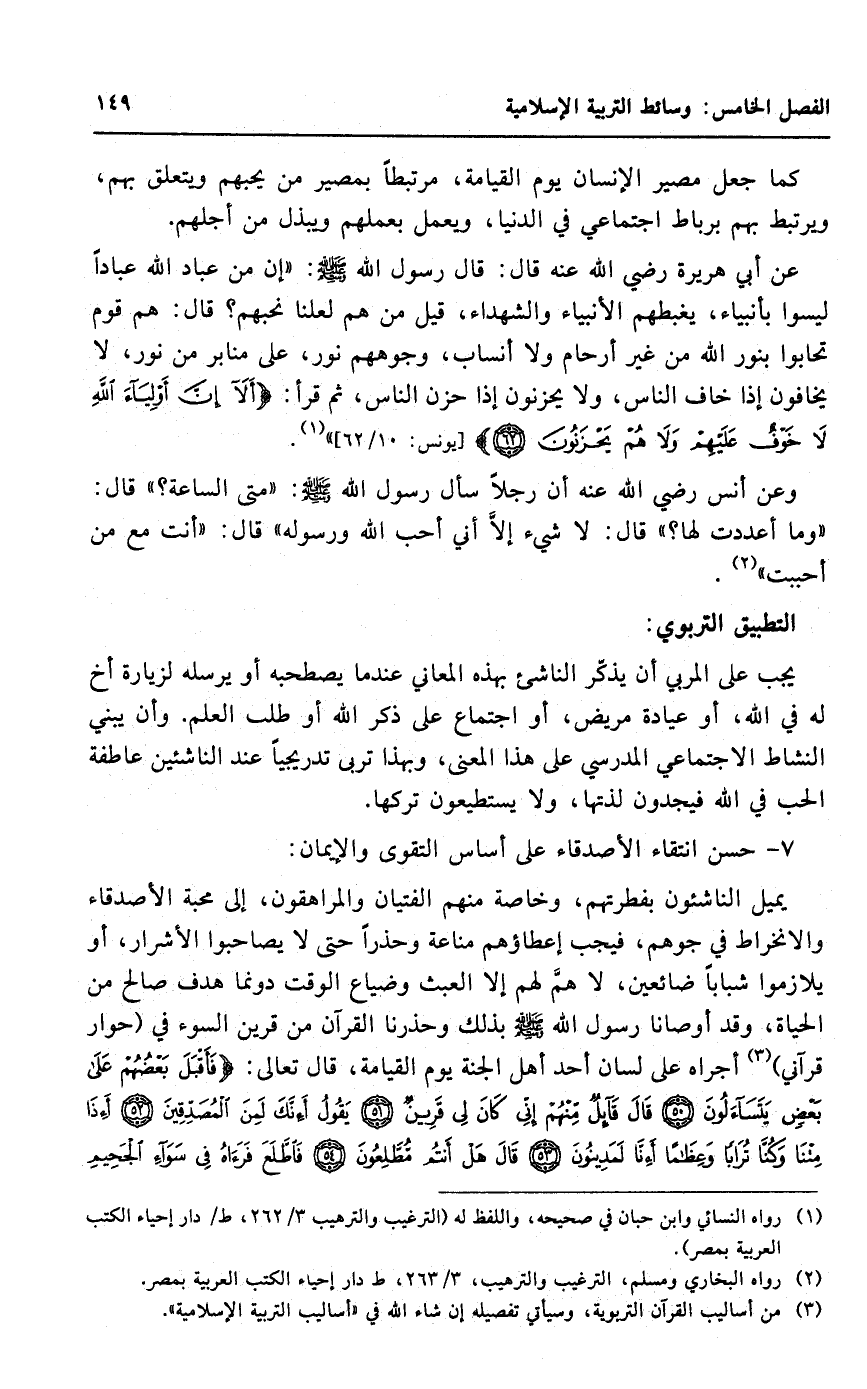 الفصل الخامس: وسائط التربية الإسلامية ١٤٩
كما جعل مصير الإنسان يوم القيامة، مرتبطاً بمصير من يحبهم ويتعلق بهم،
ويرتبط بهم برباط اجتماعي في الدنيا، ويعمل بعملهم ويبذل من أجلهم.
عن أبي هريرة رضي الله عنه قال: قال رسول الله ﷺ: «إن من عباد الله عباداً
ليسوا بأنبياء، يغبطهم الأنبياء والشهداء، قيل من هم لعلنا نحبهم؟ قال: هم قوم
تحابوا بنور الله من غير أرحام ولا أنساب، وجوههم نور، على منابر من نور، لا
يخافون إذا خاف الناس، ولا يحزنون إذا حزن الناس، ثم قرأ: ﴿أَلَآ إِنَّ أَوْلِيَآءَ ٱللَّهِ
لَا خَوْفٌ عَلَيْهِمْ وَلَا هُمْ يَحْزَنُونَ ۝٦٢﴾ [يونس: ١٠/ ٦٢]»(١).
وعن أنس رضي الله عنه أن رجلاً سأل رسول الله ﷺ: «متى الساعة؟» قال:
«وما أعددت لها؟» قال: لا شيء إلاَّ أني أحب الله ورسوله» قال: «أنت مع من
أحببت»(٢) .
التطبيق التربوي:
يجب على المربي أن يذكّر الناشئ بهذه المعاني عندما يصطحبه أو يرسله لزيارة أخ
له في الله، أو عيادة مريض، أو اجتماع على ذكر الله أو طلب العلم. وأن يبني
النشاط الاجتماعي المدرسي على هذا المعنى، وبهذا تربى تدريجياً عند الناشئين عاطفة
الحب في الله فيجدون لذتها، ولا يستطيعون تركها.
٧- حسن انتقاء الأصدقاء على أساس التقوى والإيمان:
يميل الناشئون بفطرتهم، وخاصة منهم الفتيان والمراهقون، إلى محبة الأصدقاء
والانخراط في جوهم، فيجب إعطاؤهم مناعة وحذراً حتى لا يصاحبوا الأشرار، أو
يلازموا شباباً ضائعين، لا همَّ لهم إلا العبث وضياع الوقت دونما هدف صالح من
الحياة، وقد أوصانا رسول الله ﷺ بذلك وحذرنا القرآن من قرين السوء في (حوار
قرآني)(٣) أجراه على لسان أحد أهل الجنة يوم القيامة، قال تعالى: ﴿فَأَقْبَلَ بَعْضُهُمْ عَلَىٰ
بَعْضٍ يَتَسَآءَلُونَ ۝٥٠ قَالَ قَآئِلٌ مِّنْهُمْ إِنِّى كَانَ لِى قَرِينٌ ۝٥١ يَقُولُ أَءِنَّكَ لَمِنَ ٱلْمُصَدِّقِينَ ۝٥٢ أَءِذَا
مِتْنَا وَكُنَّا تُرَابًا وَعِظَـٰمًا أَءِنَّا لَمَدِينُونَ ۝٥٣ قَالَ هَلْ أَنتُم مُّطَّلِعُونَ ۝٥٤ فَٱطَّلَعَ فَرَءَاهُ فِى سَوَآءِ ٱلْجَحِيمِ
(١) رواه النسائي وابن حبان في صحيحه، واللفظ له (الترغيب والترهيب ٣/ ٢٦٢، ط/ دار إحياء الكتب
العربية بمصر).
(٢) رواه البخاري ومسلم، الترغيب والترهيب، ٣/ ٢٦٣، ط دار إحياء الكتب العربية بمصر.
(٣) من أساليب القرآن التربوية، وسيأتي تفصيله إن شاء الله في «أساليب التربية الإسلامية».